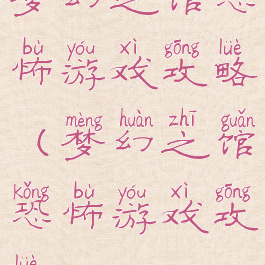 梦幻之馆恐
bù yóu xì gōng lüè
怖游戏攻略
mèng huàn zhī guǎn
（梦幻之馆
kǒng bù yóu xì gōng
恐怖游戏攻
lüè